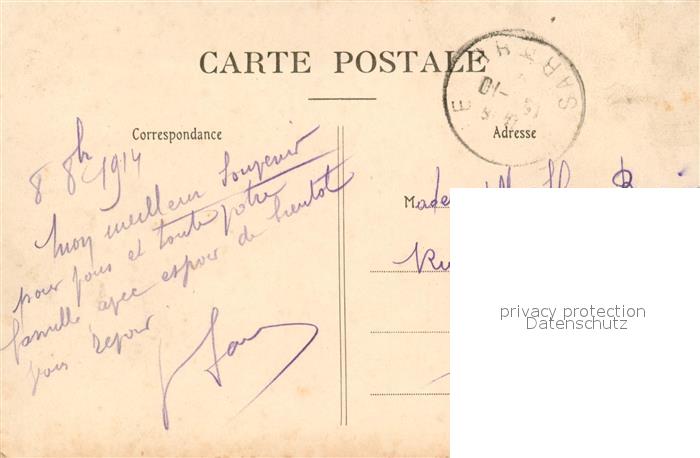 CARTE POSTALE
Correspondance
Adresse
SARTHE
8 8bre 1914
Mon meilleur Souvenir
pour vous et toute votre
famille, avec espoir de bientôt
vous
M
Ru
privacy protection
Datenschutz